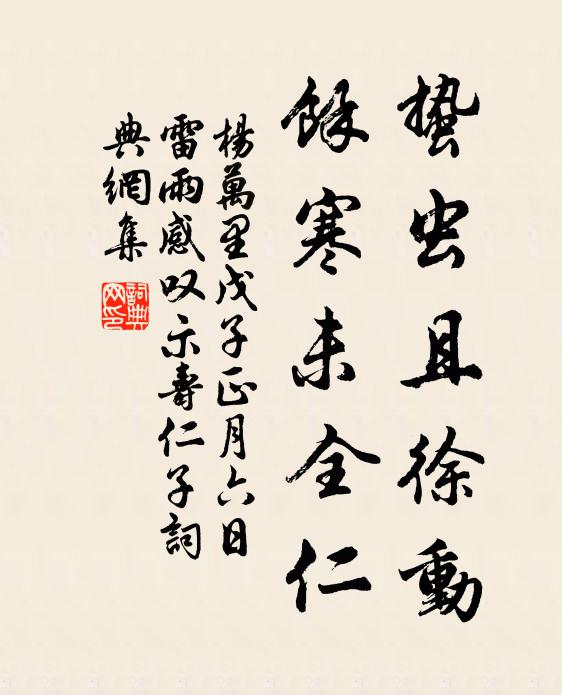 蟄虫且徐動
餘寒未全仁
楊萬里戊子正月六日
雷雨感叹示壽仁子詞
典網集
詞典
网印